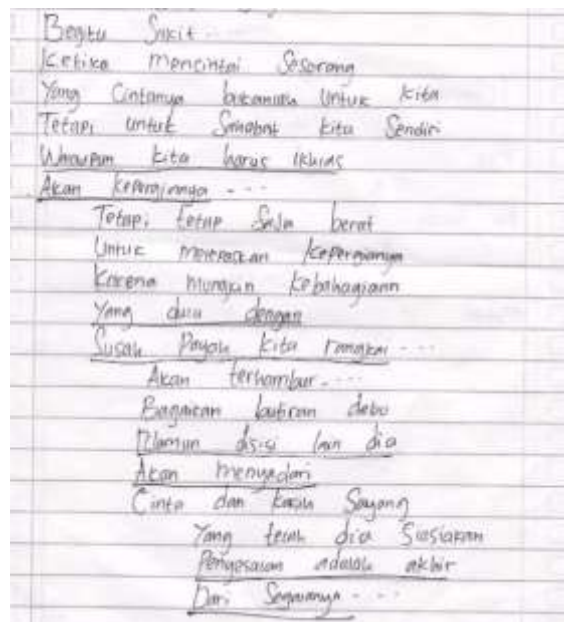 Begitu Sakit..
Ketika mencintai Seseorang
Yang Cintanya bukanlah Untuk kita
Tetapi untuk Sahabat kita Sendiri
Walaupun kita harus Ikhlas
Akan kepergiannya ...
Tetapi tetap Saja berat
Untuk melepaskan kepergianya
Karena mungkin kebahagiann
Yang dulu dengan
Susah Payah kita rangkai ....
Akan terhambur....
Bagaikan butiran debu
Namun disisi lain dia
Akan menyadari
Cinta dan kasih Sayang
Yang telah dia Siasiakan
Penyesalan adalah akhir
Dari Segalanya ...